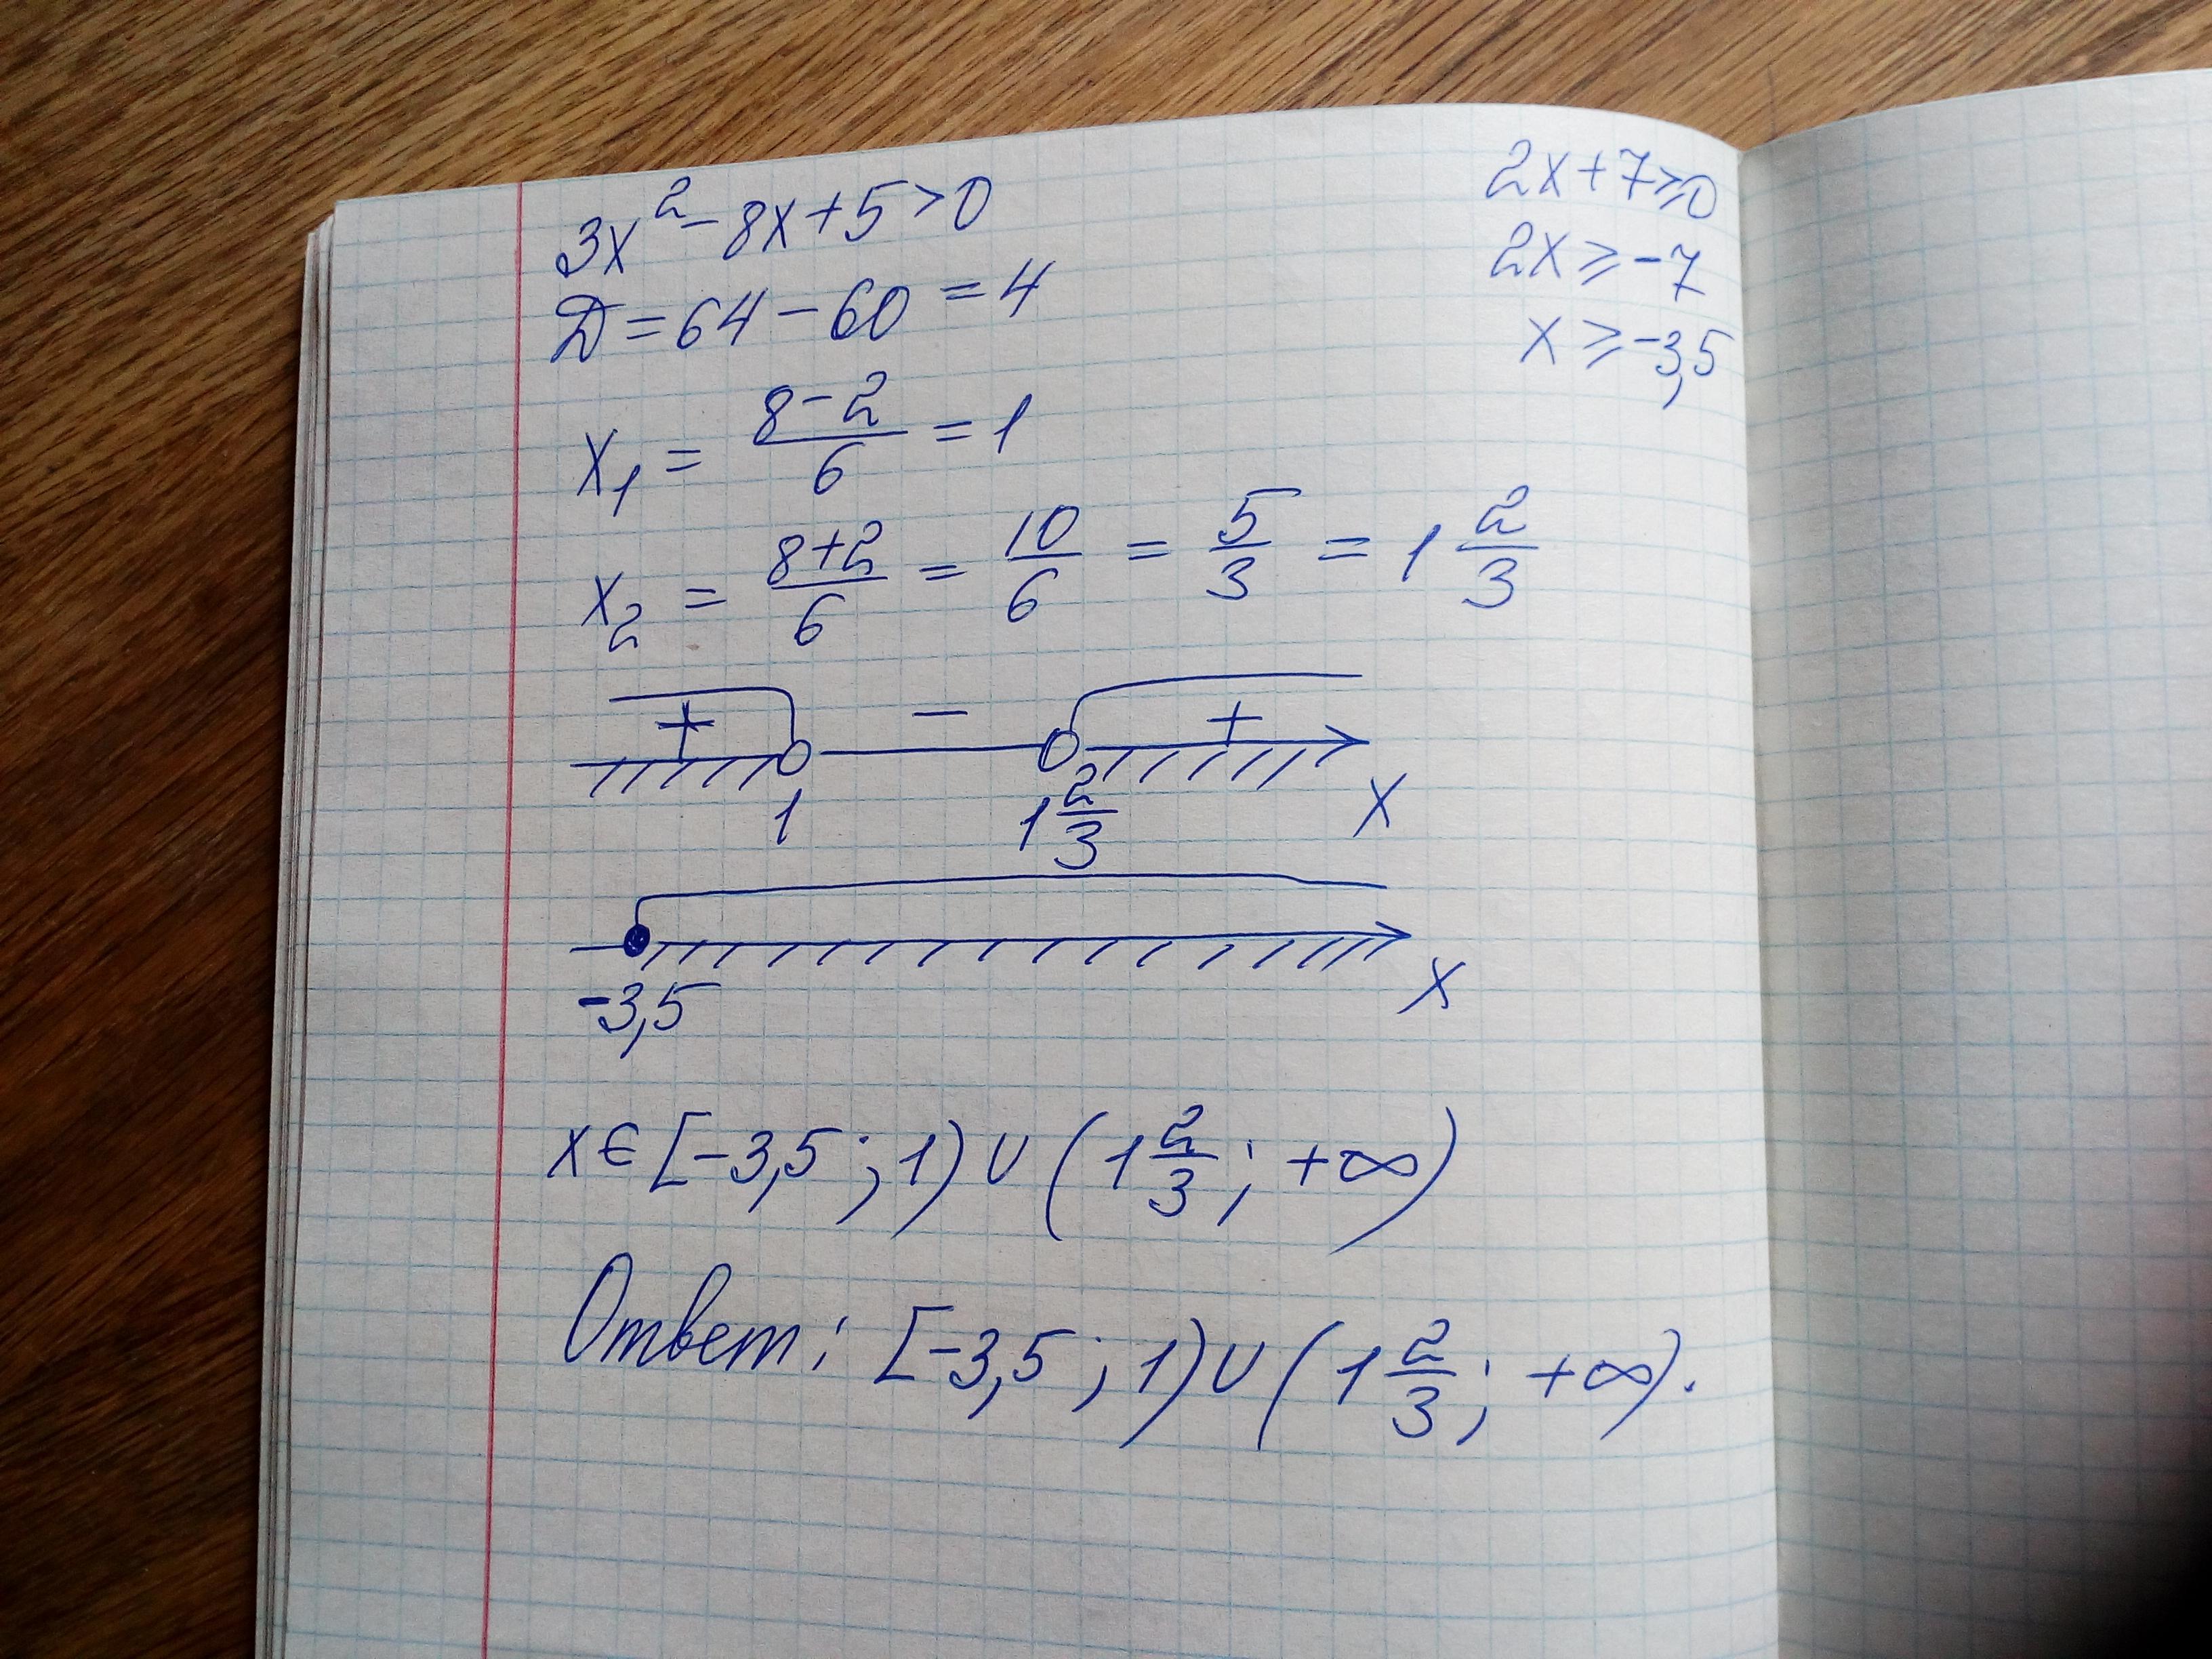 3x² - 8x + 5 > 0
D = 64 - 60 = 4
x₁ = (8-2)/6 = 1
x₂ = (8+2)/6 = 10/6 = 5/3 = 1 2/3
2x + 7 ≥ 0
2x ≥ -7
x ≥ -3,5
+ - +
1 1 2/3 x
-3,5 x
x ∈ [-3,5; 1) ∪ (1 2/3; +∞)
Ответ: [-3,5; 1) ∪ (1 2/3; +∞).